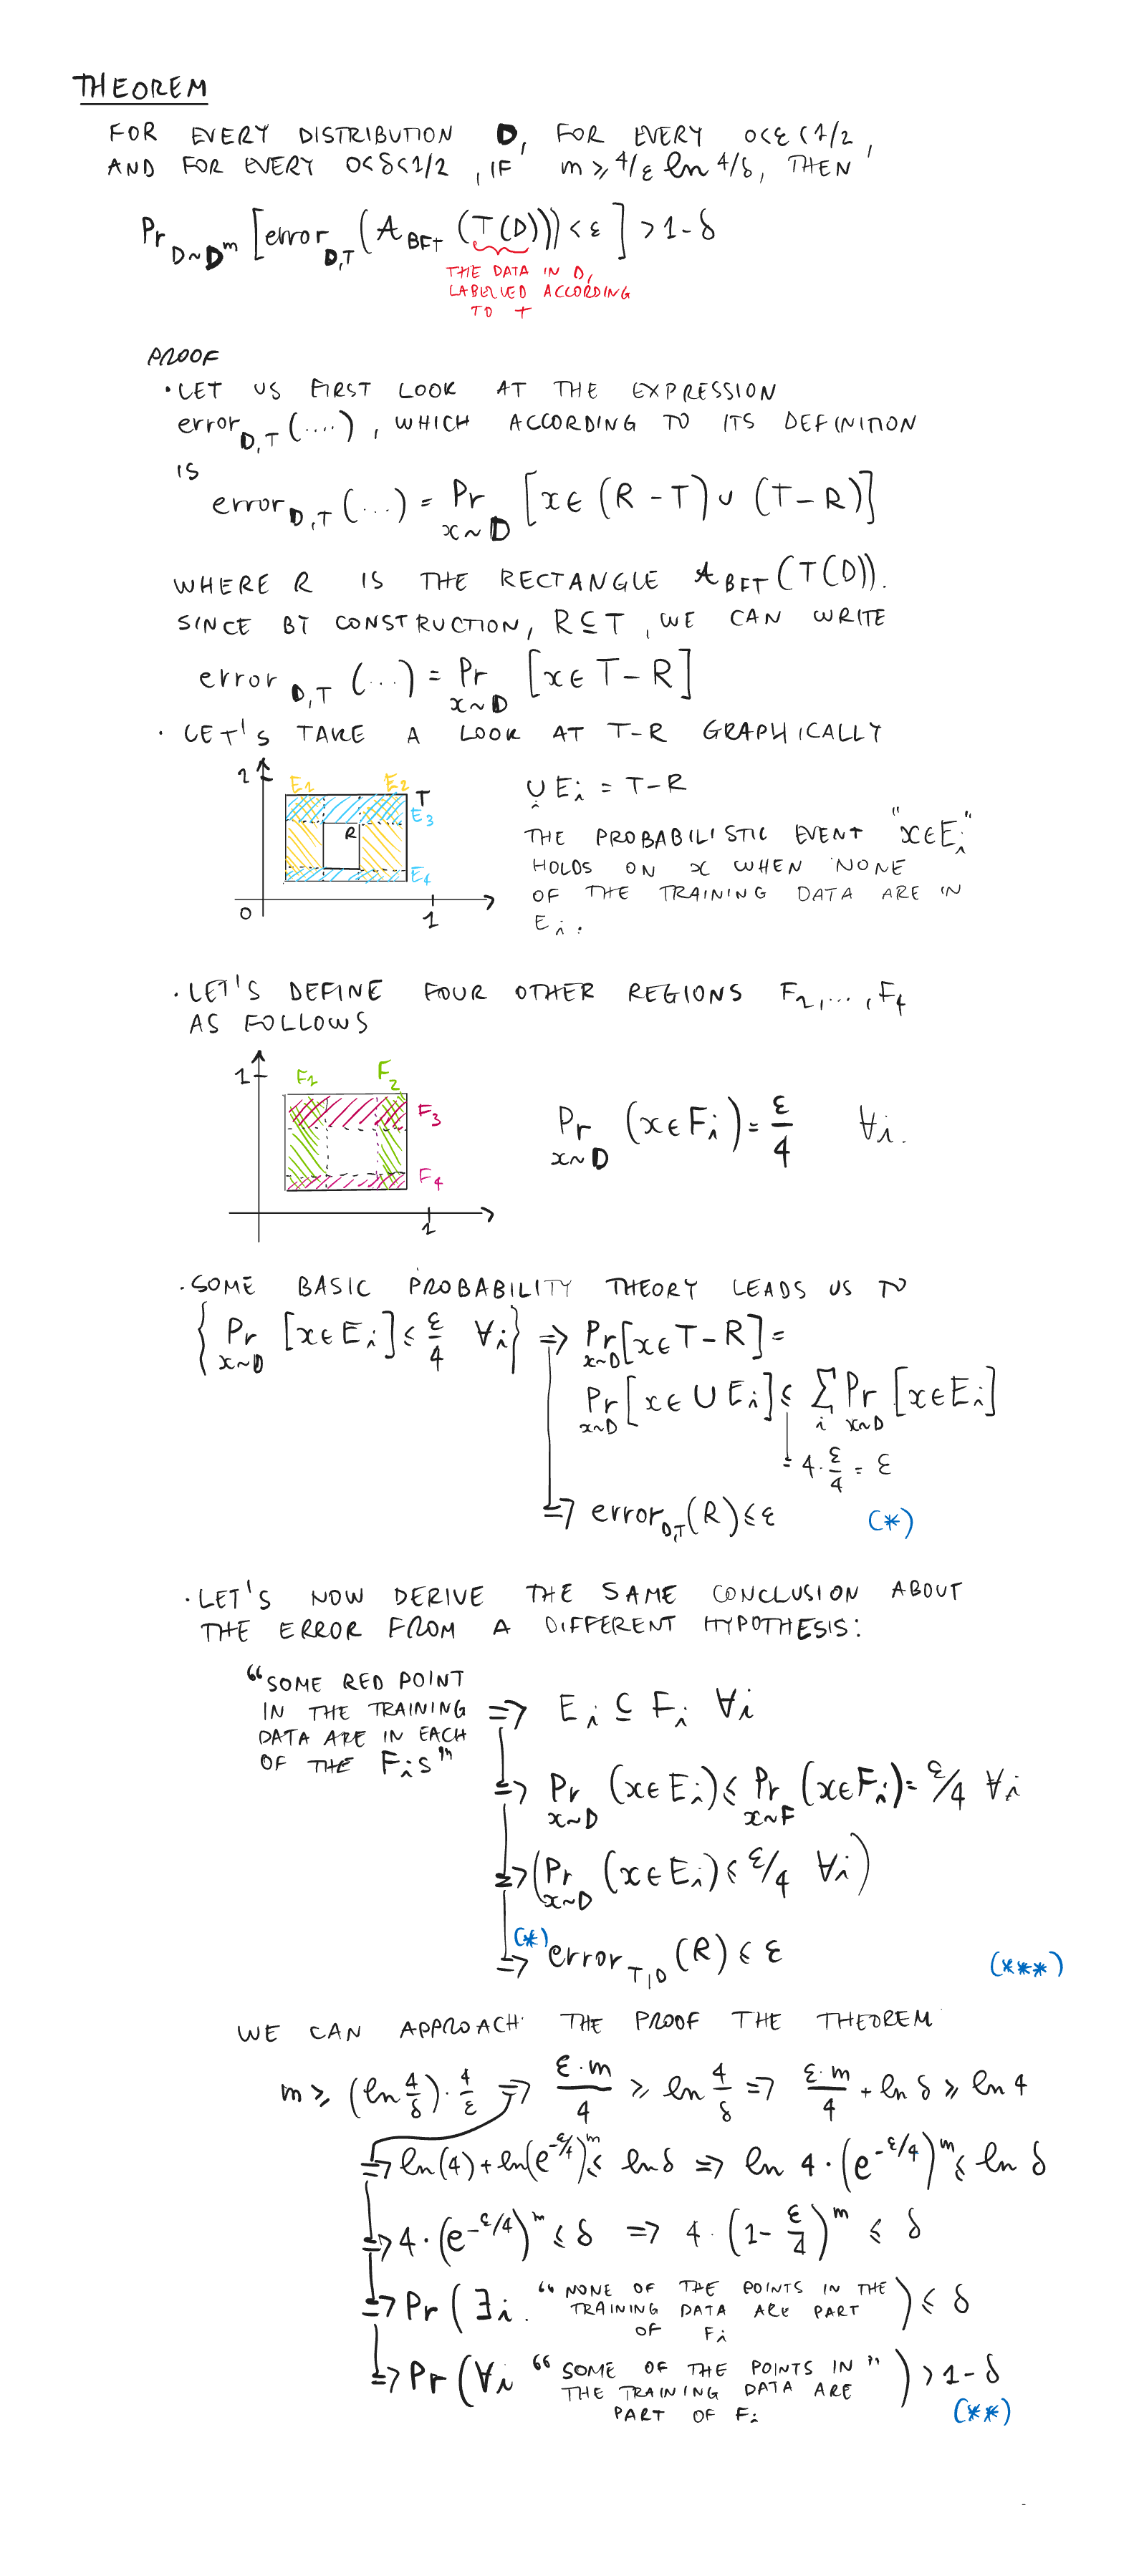 THEOREM
FOR EVERY DISTRIBUTION D, FOR EVERY 0<ε<1/2,
AND FOR EVERY 0<δ<1/2, IF m ≥ 4/ε ln 4/δ, THEN
Pr D~D^m [error D,T (A BFT (T(D))) < ε] > 1-δ
THE DATA IN D,
LABELLED ACCORDING
TO T
PROOF
• LET US FIRST LOOK AT THE EXPRESSION
error D,T (....), WHICH ACCORDING TO ITS DEFINITION
IS
error D,T (...) = Pr x~D [x ∈ (R - T) ∪ (T - R)]
WHERE R IS THE RECTANGLE A BFT (T(D)).
SINCE BY CONSTRUCTION, R ⊆ T, WE CAN WRITE
error D,T (...) = Pr x~D [x ∈ T - R]
• LET'S TAKE A LOOK AT T-R GRAPHICALLY
1 E1 E2 T
E3
R
E4
0 1
∪i Ei = T-R
THE PROBABILISTIC EVENT "x∈Ei"
HOLDS ON x WHEN NONE
OF THE TRAINING DATA ARE IN
Ei.
• LET'S DEFINE FOUR OTHER REGIONS F1,...,F4
AS FOLLOWS
1 F1 F2
F3
F4
1
Pr x~D (x∈Fi) = ε/4 ∀i.
• SOME BASIC PROBABILITY THEORY LEADS US TO
{Pr x~D [x∈Ei] ≤ ε/4 ∀i} => Pr x~D [x∈T-R] =
Pr x~D [x∈∪Ei] ≤ Σi Pr x~D [x∈Ei]
= 4·ε/4 = ε
=> error D,T (R) ≤ ε (*)
• LET'S NOW DERIVE THE SAME CONCLUSION ABOUT
THE ERROR FROM A DIFFERENT HYPOTHESIS:
"SOME RED POINT
IN THE TRAINING
DATA ARE IN EACH
OF THE Fis"
=> Ei ⊆ Fi ∀i
=> Pr x~D (x∈Ei) ≤ Pr x~F (x∈Fi) = ε/4 ∀i
=> (Pr x~D (x∈Ei) ≤ ε/4 ∀i)
(*) => error T,D (R) ≤ ε (***)
WE CAN APPROACH THE PROOF THE THEOREM
m ≥ (ln 4/δ)·4/ε => ε·m/4 ≥ ln 4/δ => ε·m/4 + ln δ ≥ ln 4
=> ln(4) + ln(e^-ε/4)^m ≤ ln δ => ln 4·(e^-ε/4)^m ≤ ln δ
=> 4·(e^-ε/4)^m ≤ δ => 4·(1-ε/4)^m ≤ δ
=> Pr (∃i. "NONE OF THE POINTS IN THE
TRAINING DATA ARE PART
OF Fi ) ≤ δ
=> Pr (∀i "SOME OF THE POINTS IN "
THE TRAINING DATA ARE
PART OF Fi ) > 1-δ
(**)